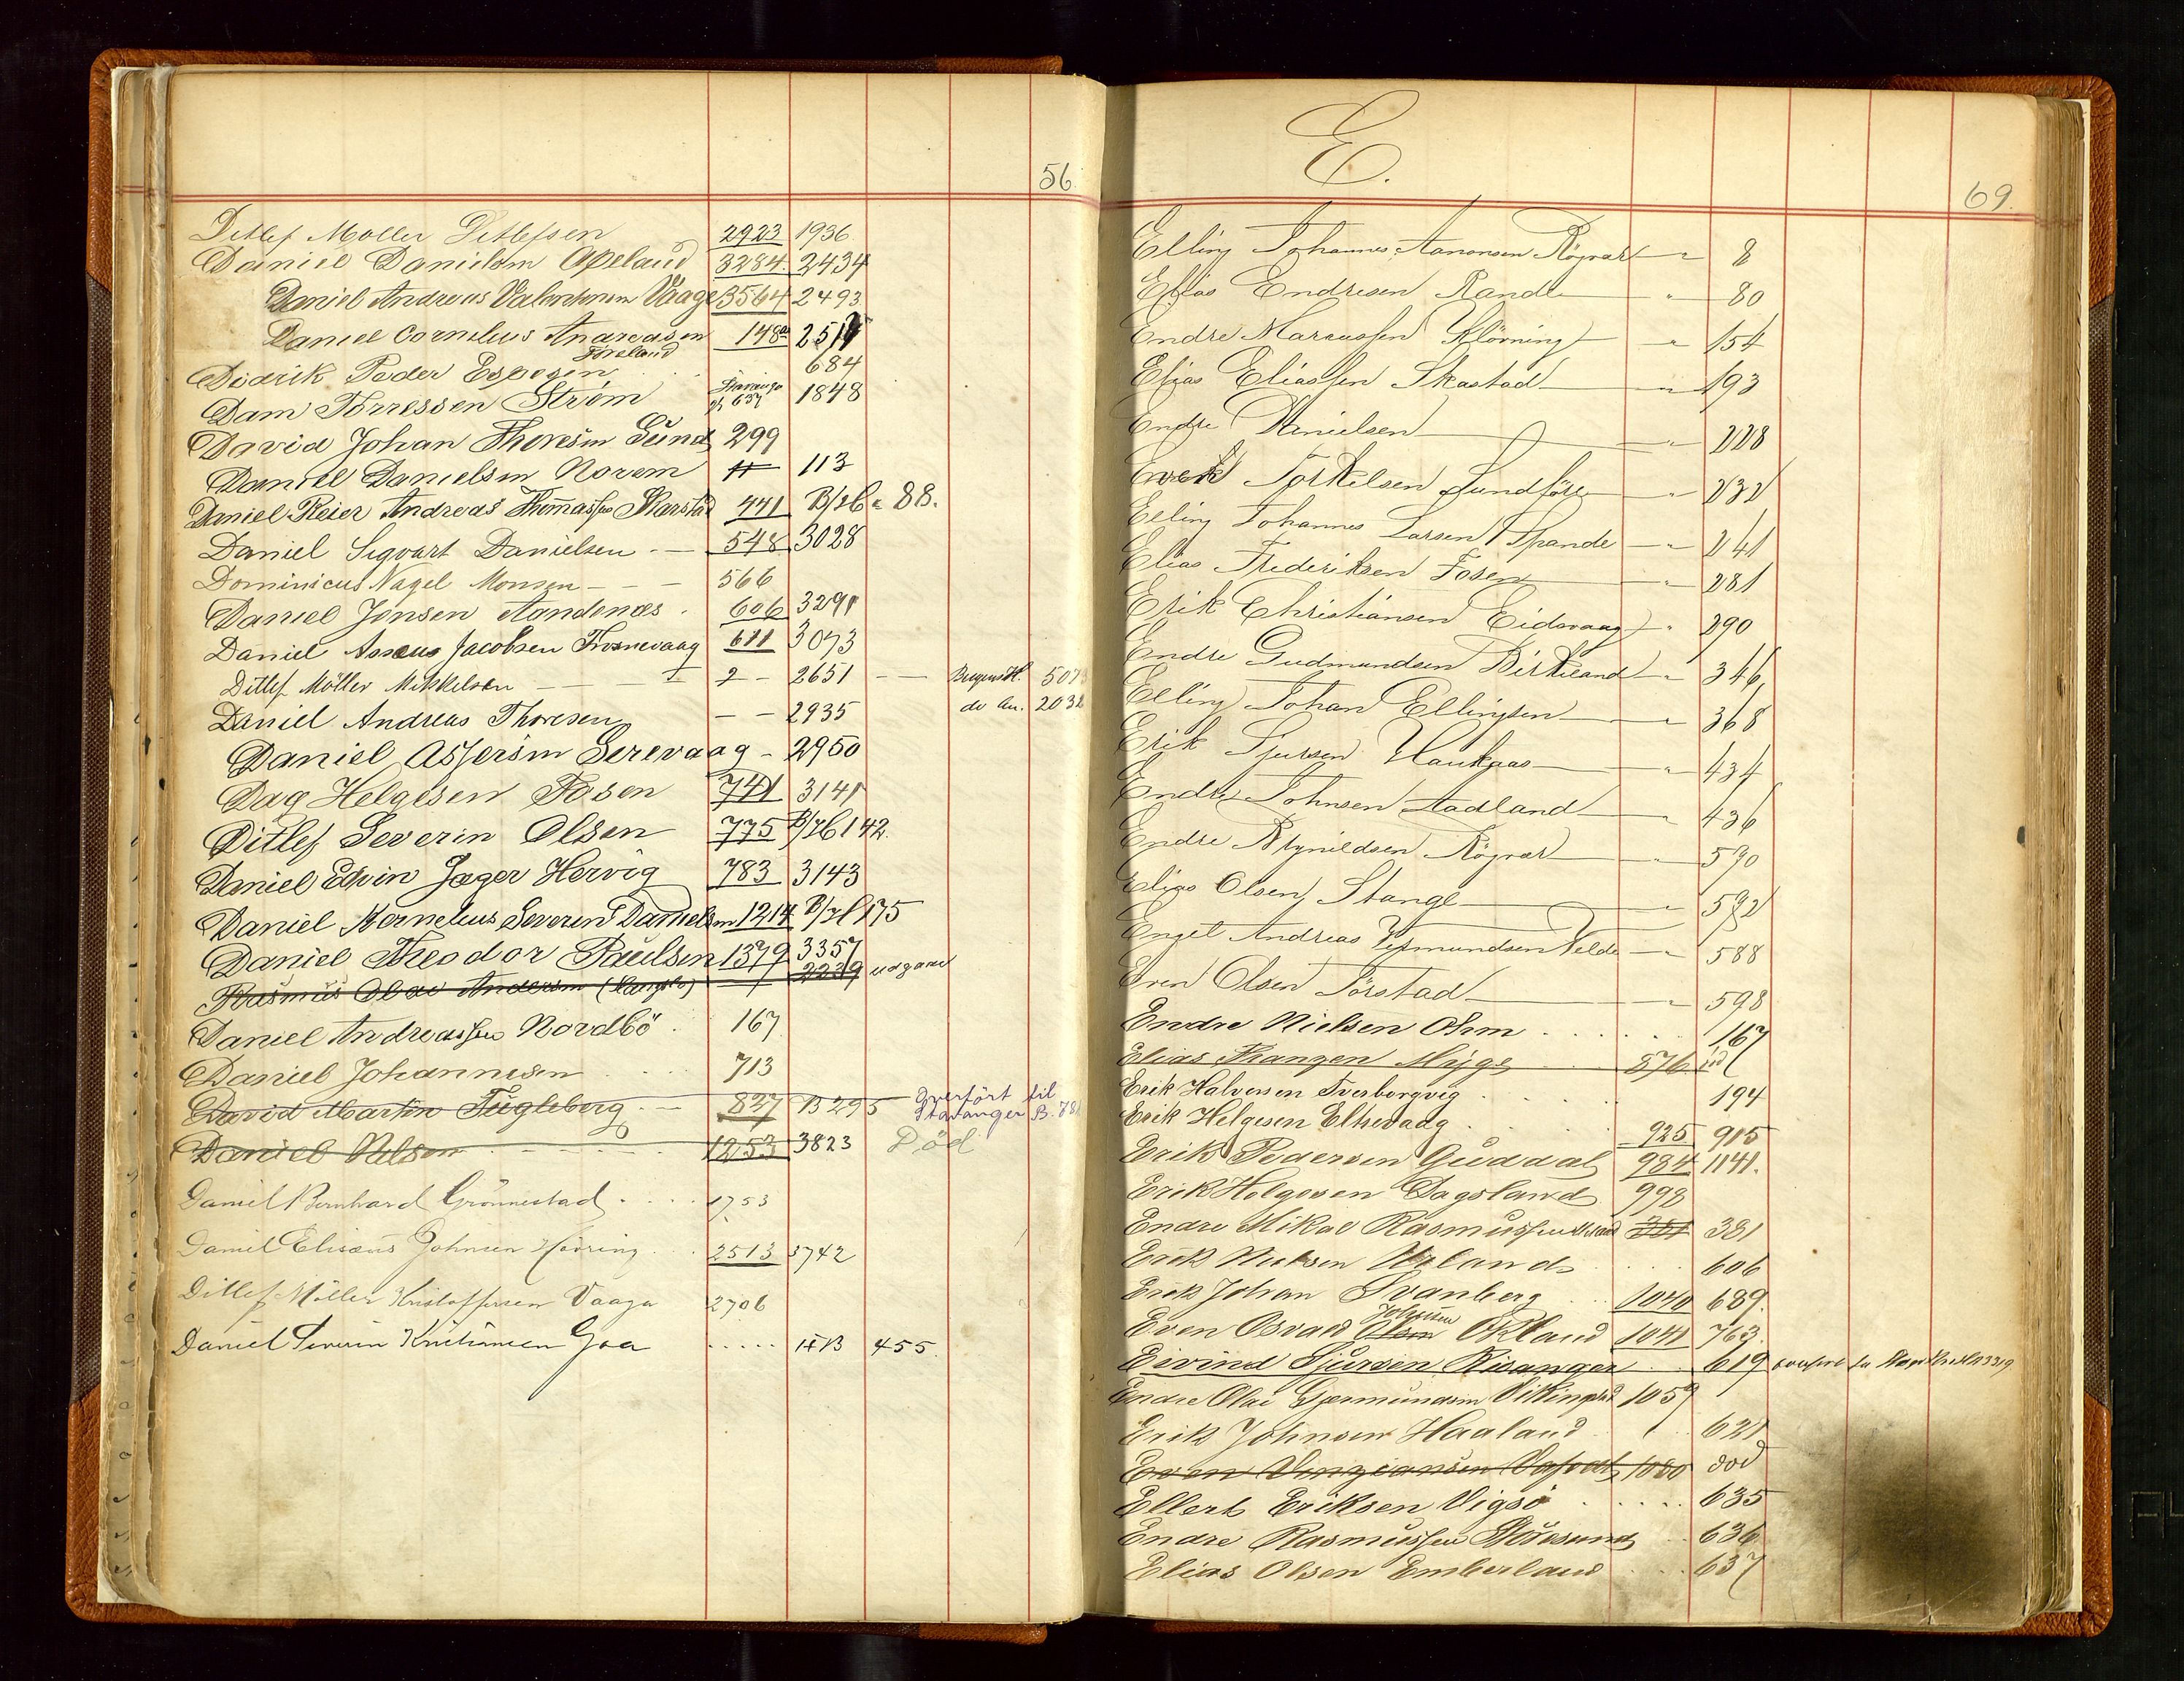 56
Ditlef Møller Ditlefsen 2923 1936
Daniel Danielsen Apeland 3284 2434
Daniel Andreas Valentinsen Vaage 3564 2493
Daniel Cornelius Andreasen 148a 251
Føreland
Didrik Peder Espesen 684
Dam Torressen Strøm Stavanger 637 1848
David Johan Thoresen Sund 299
Daniel Danielsen Norem 11 113
Daniel Reier Andreas Thomassen Skarstad 441 B/76 88.
Daniel Sigvart Danielsen 548 3028
Dominicus Nagel Monsen 566
Daniel Jonsen Aandenæs 606 3291
Daniel Asseus Jacobsen Trosnevaag 611 3073
Ditlef Möller Mikkelsen I 2 - 2651 - - Bergens H. 507
Daniel Andreas Thoresen - - 2935 do An. 2032
Daniel Assersen Serevaag - 2950
Dag Helgesen Fosen 741 3141
Ditlef Severin Olsen 775 B/76 142.
Daniel Edvin Jæger Hervig 783 3143
Daniel Kornelius Severin Danielsen 1214 B/76 175
Daniel Theodor Paulsen 1379 3357
Rasmus Olai Andersen 2239 udgaar
Daniel Andreassen Nordbö 167
Daniel Johannesen 713
David Martin Fugleberg 837 B295 Overført til Stavanger B. 78
Daniel Nilsen 1253 3823 Död
Daniel Bernhard Grønnestad 1753
Daniel Elisæus Johnsen Høvring 2513 3742
Ditlef Möller Kristoffersen Vaaga 2706
Daniel Severin Kristiansen Goa ..... 14B 455.
E.
69.
Elling Johannes Aanonsen Røgvær " 8
Elias Endresen Rande " 80
Endre Marcussen Kløvning " 154
Elias Eliassen Skastad " 193
Endre Danielsen " 228
Erek Torkelsen Sundføre " 232
Elling Johannes Larsen Spande " 241
Elias Frederiksen Fosen " 281
Erik Christiansen Eidsvaag " 290
Endre Gudmundsen Birkeland " 346
Elling Johan Ellingsen " 368
Erik Sjursen Haukaas " 434
Endre Johnsen Aadland " 436
Endre Brynildsen Røgvær " 590
Elias Olsen Stange " 592
Engel Andreas Vermundsen Velde " 588
Even Olsen Tørstad " 598
Endre Nielsen Ohm 167
Elias Franzen Myge 876 ud
Erik Halvorsen Tverborgvig 194
Erik Helgesen Eltrevaag 925 915
Erik Pedersen Guddal 984 1141.
Erik Helgesen Dagsland 998
Endre Mikal Rasmussen 381 381
Erik Nielsen Urland 606
Erik Johan Svanberg 1040 689.
Johnsen
Even Osvald Olsen Økland 1041 763.
Eivind Sjursen Risanger 619
Endre Olai Gjermundsen Vikingstad 1059
Erik Johnsen Haaland 621
Even 1080 död
Ellert Eriksen Vigsö 635
Endre Rasmussen Störesund 636
Elias Olsen Emberland 637